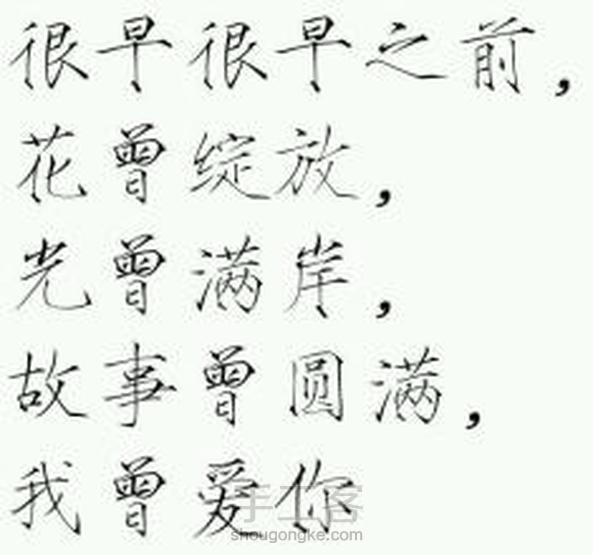 很早很早之前，
花曾绽放，
光曾满岸，
故事曾圆满，
我曾爱你
手工客
shougongke.com